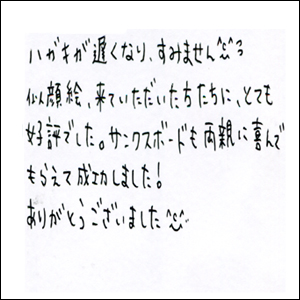 ハガキが遅くなり、すみません^^;
似顔絵、来ていただいた方たちに、とても
好評でした。サンクスボードも両親に喜んで
もらえて成功しました!
ありがとうございました^^